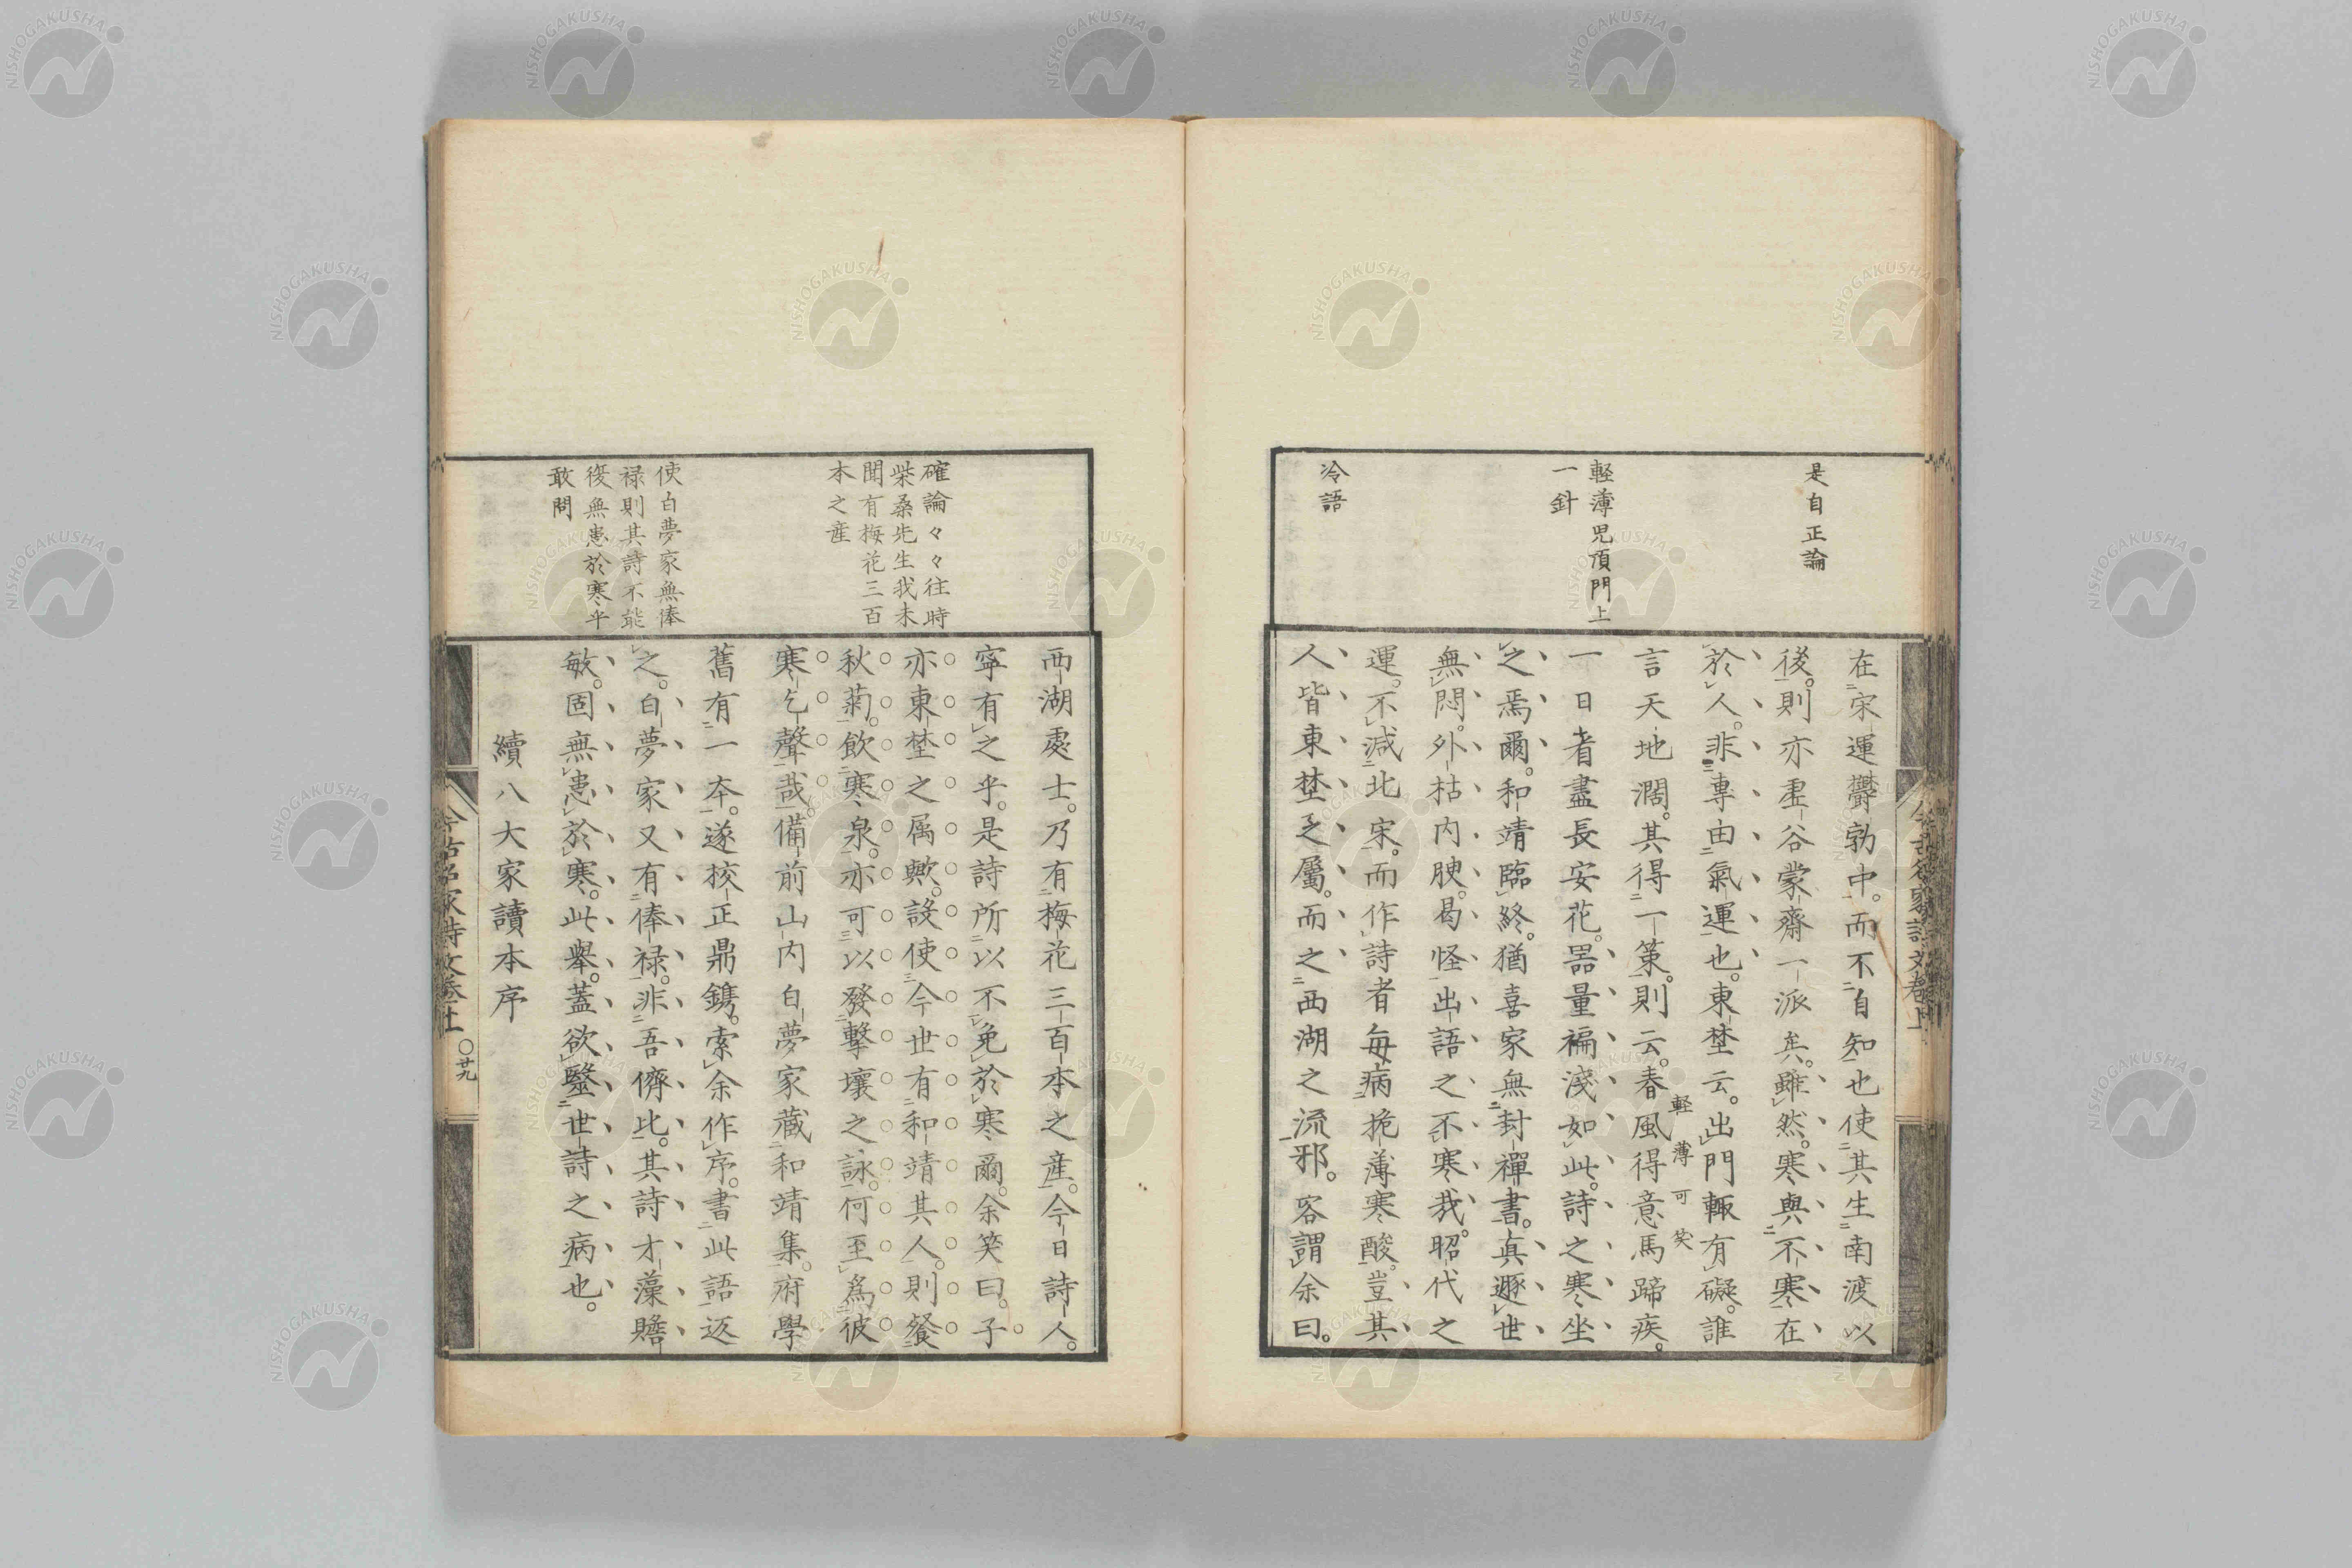 是自正論
輕薄児頂門上
一針
冷語
在宋運鬱勃中。而不自知也使其生南渡以
後。則亦疊谷蒙齋一派矣。雖然。寒與不寒在
於人。非專由氣運也。東埜云。出門輙有礙。誰
言天地濶。其得一策。則云。春風得意馬蹄疾。
輕薄可笑
一日看盡長安花。噐量褊淺如此。詩之寒坐
之焉爾。和靖臨終。猶喜家無封禪書。真遯世
無悶。外枯內腴。曷怪出語之不寒哉。昭代之
運。不減北宋。而作詩者每病挽薄寒酸。豈其
人皆東埜之屬。而之西湖之流邪。客謂余曰。
確論々々往時
柴桑先生我未
聞有梅花三百
本之産
使白夢家無俸
禄則其詩不能
復無患於寒乎
敢問
西湖處士。乃有梅花三百本之産。今日詩人。
寧有之乎。是詩所以不免於寒爾。余笑曰。子
亦東埜之属歟。設使今世有和靖其人。則餐
秋菊。飲寒泉。亦可以發擊壤之詠。何至爲彼
寒乞聲哉。備前山内白夢家藏和靖集。府學
舊有一本。遂挍正鼎鐫。索余作序。書此語返
之。白夢家又有俸禄。非吾儕比。其詩才藻贍
敏。固無患於寒。此舉。蓋欲鑒世詩之病也。
續八大家讀本序
今古名家詩文卷上
〇廿九